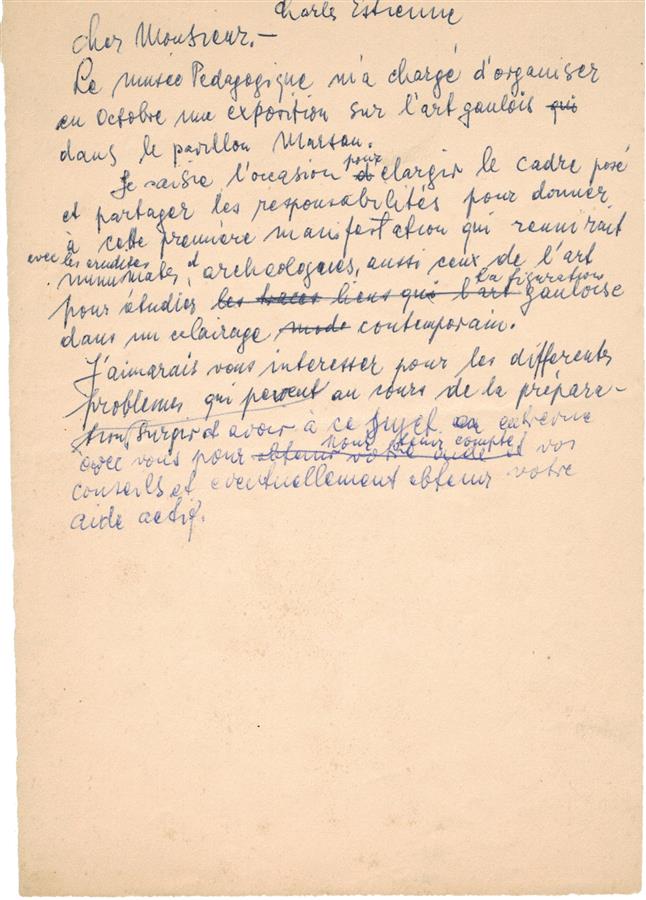 Charles Estienne
Cher Monsieur.—
Le musée Pedagogique m'a chargé d'organiser
en Octobre une exposition sur l'art gaulois qui
dans le pavillon Marsan.
Je saisie l'occasion pour élargir le cadre posé
et partager les responsabilités pour donner
à cette première manifestation qui reunirait
avec les erudites
numismates, et archeologues, aussi ceux de l'art
la figuration
pour étudier les traces liens qui l'art gauloise
dans un eclairage mode contemporain.
J'aimarais vous interesser pour les differentes
problemes qui peuvent au cours de la prépara-
tion surgir et avoir à ce sujet
avec vous pour obtenir votre aide et vos
pour tenir compte
conseils et eventuellement obtenir votre
aide actif.